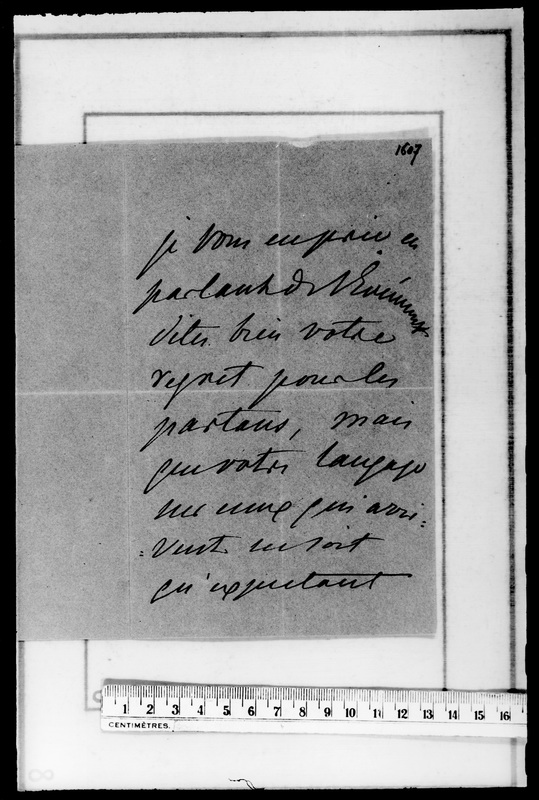 1607
je vous en prie en
parlant de l'Événement
dites bien votre
regret pour les
partans, mais
que votre langage
sur ceux qui arri-
=vent ne soit
qu'expectant
1 2 3 4 5 6 7 8 9 10 11 12 13 14 15 16
CENTIMÈTRES